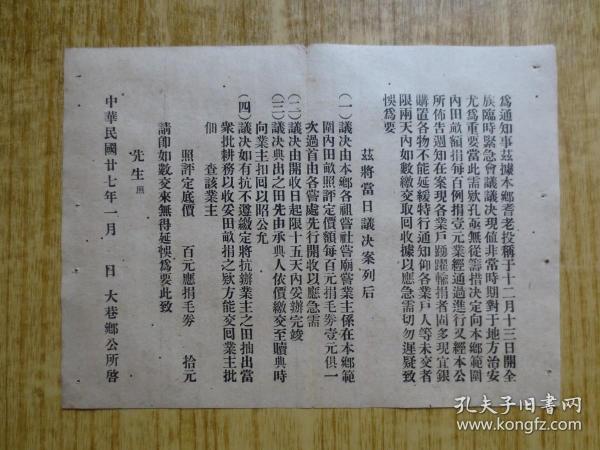 為通知事茲據本鄉耆老投稱于十二月十三日開全
族臨時緊急會議議決現值非常時期對于地方治安
尤為重要當此需欵孔亟無從籌措決定向本鄉範圍
內田畝額捐每百例捐壹元業經通過進行又經本公
所佈告週知在案現各業戶踴躍輸捐者固多現宜銀
購置各物不能延緩特行通知仰各業戶人等未交者
限兩天內如數繳交取回收據以應急需切勿遲疑致
悞為要
茲將當日議決案列后
(一)議決由本鄉各祖嘗社嘗廟嘗業主係在本鄉範
圍內田畝照評定價額每百元捐毛券壹元俱一
次過首由各嘗處先行開收以應急需
(二)議決由開收日起限十五天內妥辦完竣
(三)議決典出之田先由承典人依價繳交至贖典時
向業主扣回以昭公允
(四)議決如有抗不遵繳定將抗辦業主之田抽出當
衆批耕務以收妥田畝捐之欵方能交回業主批
佃
查該業主
照評定底價 百元應捐毛券 拾元
請即如數交來無得延悞為要此致
先生 照
中華民國廿七年一月 日 大巷鄉公所啓
孔夫子旧书网
www.kongfz.com